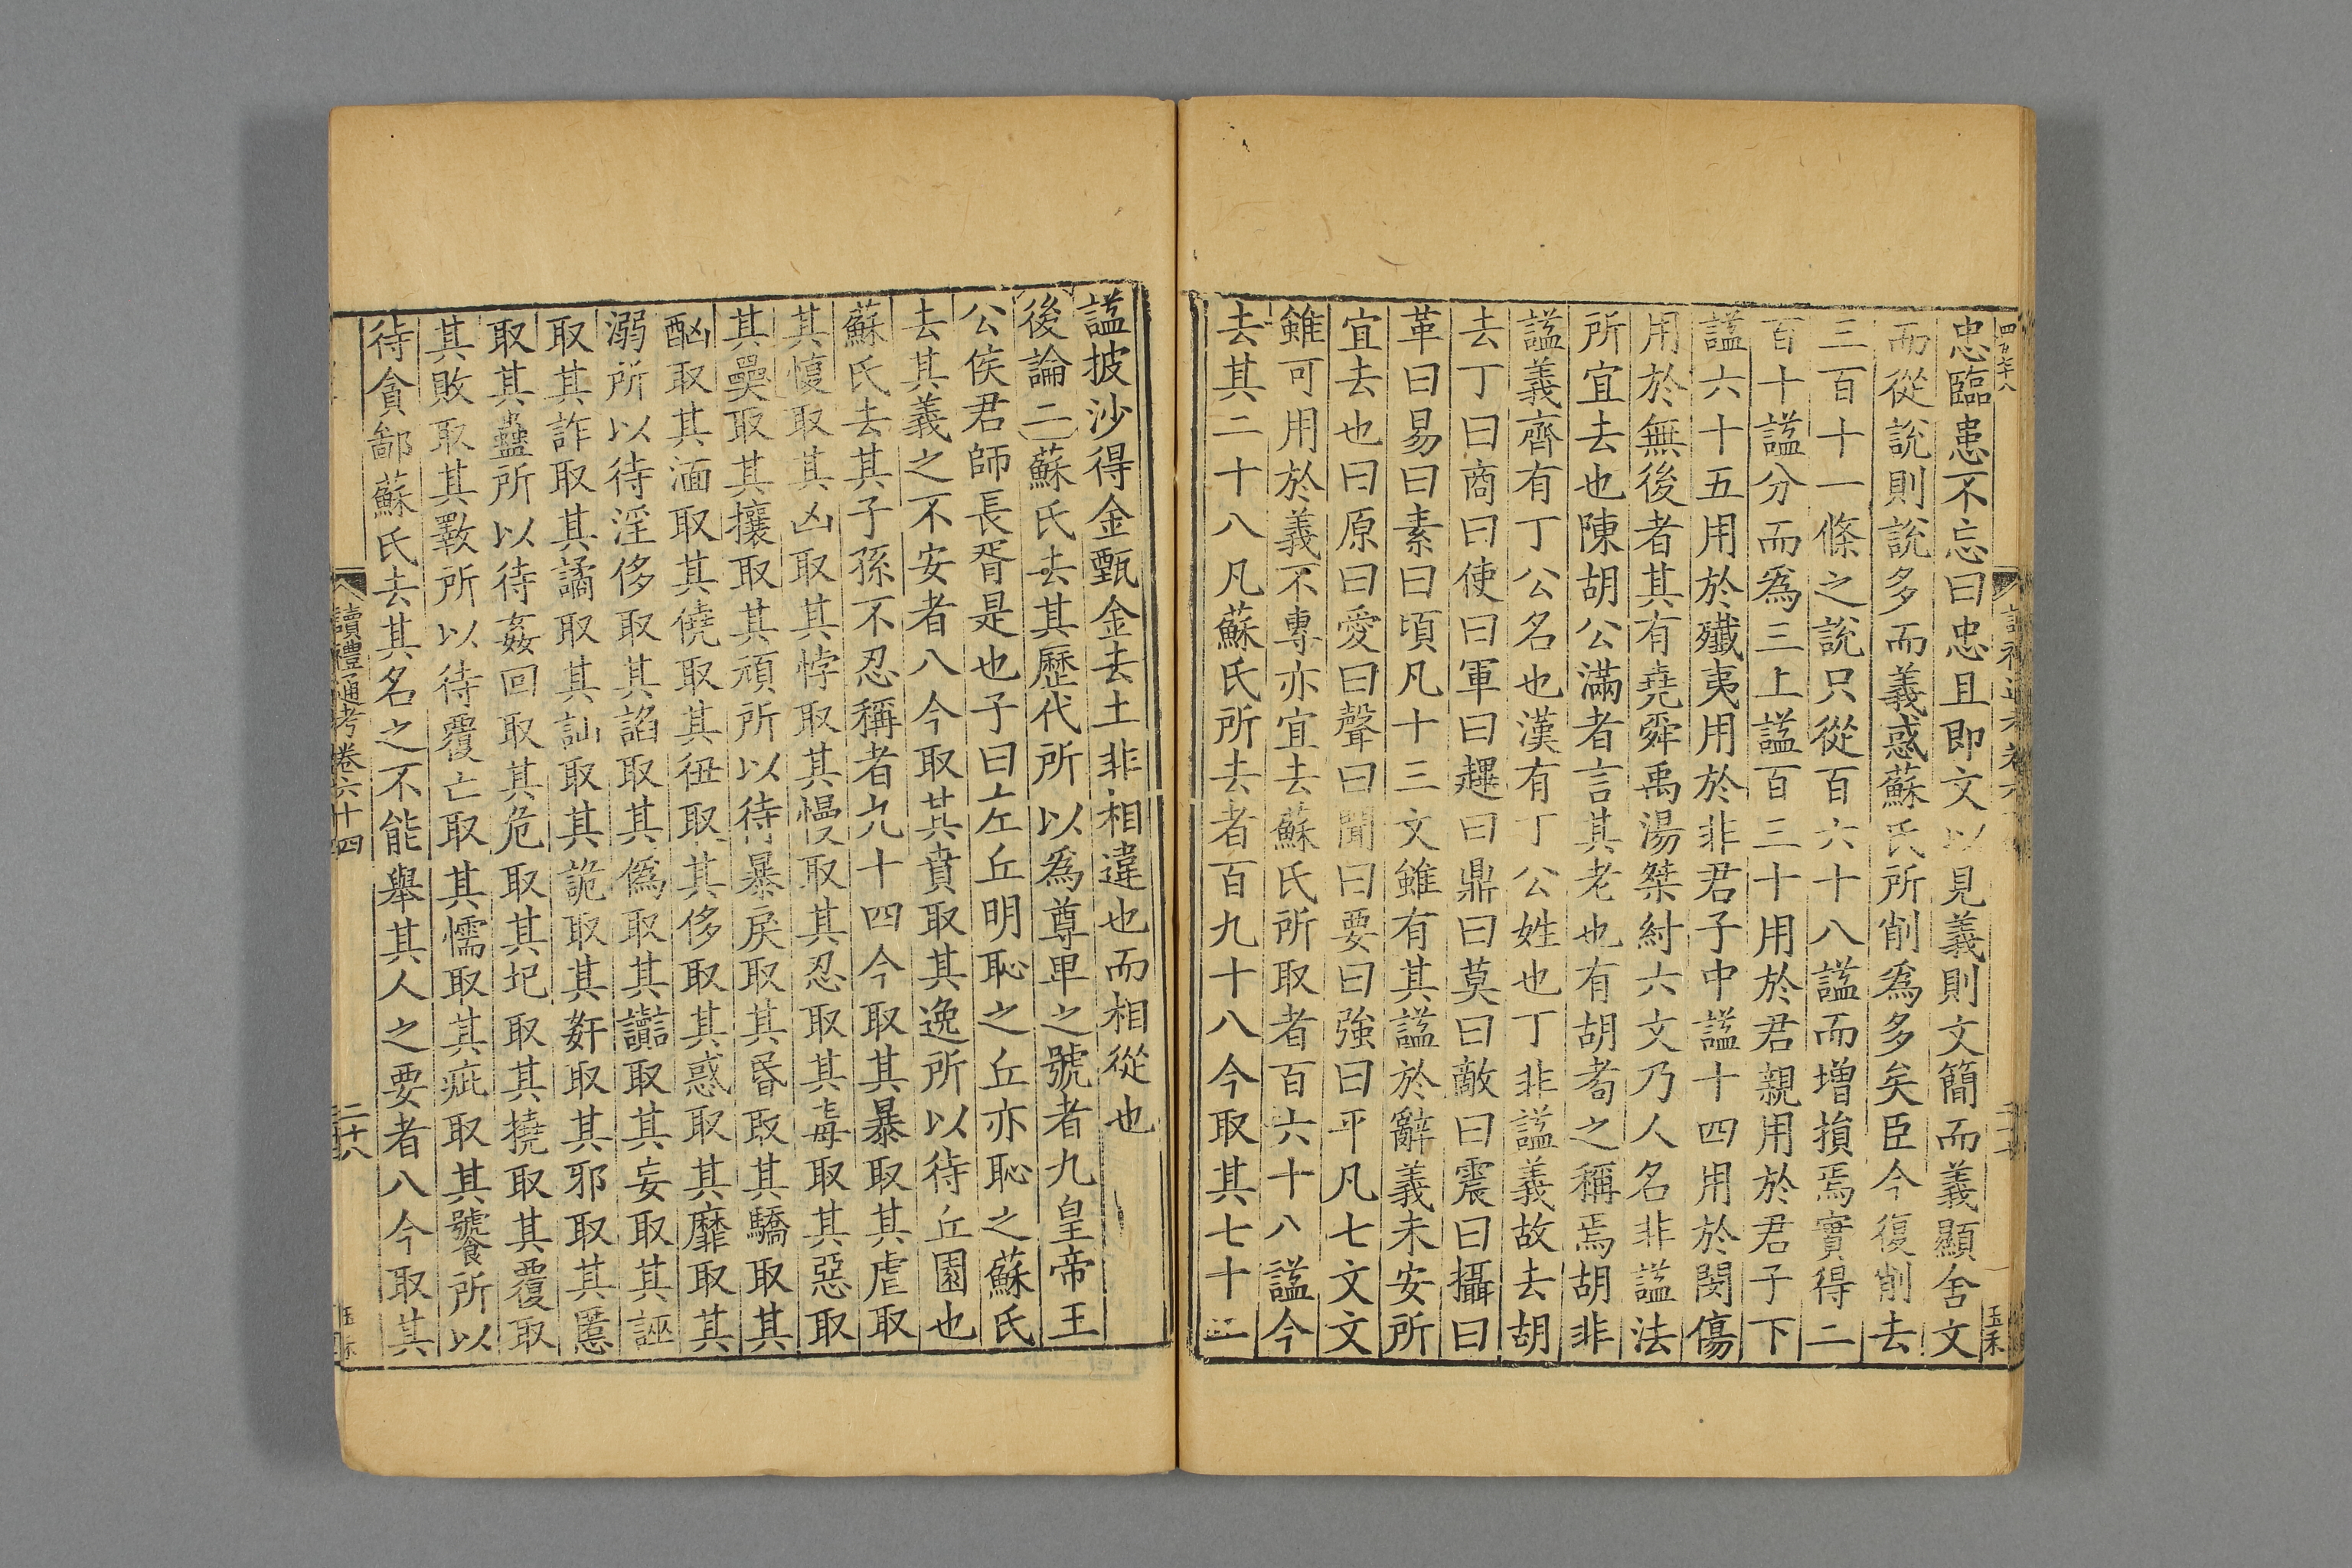 忠臨患不忘曰忠且即文以見義則文簡而義顯舍文
而從說則說多而義惑蘇氏所削爲多矣臣今復削去
三百十一條之說只從百六十八諡而增損焉實得二
百十諡分而爲三上諡百三十用於君親用於君子下
諡六十五用於殲夷用於非君子中諡十四用於閔傷
用於無後者其有堯舜禹湯桀紂六文乃人名非諡法
所宜去也陳胡公滿者言其老也有胡耉之稱焉胡非
諡義齊有丁公名也漢有丁公姓也丁非諡義故去胡
去丁曰商曰使曰軍曰趩曰鼎曰莫曰敵曰震曰攝曰
革曰易曰素曰頃凡十三文雖有其諡於辭義未安所
宜去也曰原曰愛曰聲曰聞曰要曰強曰平凡七文文
雖可用於義不專亦宜去蘇氏所取者百六十八諡今
去其二十八凡蘇氏所去者百九十八今取其七十二
諡披沙得金甄金去土非相違也而相從也
後論二蘇氏去其歷代所以爲尊𤰞之號者九皇帝王
公侯君師長胥是也子曰左丘明恥之丘亦恥之蘇氏
去其義之不安者八今取其賁取其逸所以待丘園也
蘇氏去其子孫不忍稱者九十四今取其暴取其虐取
其愎取其凶取其悖取其慢取其忍取其毒取其惡取
其㚅取其攘取其頑所以待暴戾取其昬取其驕取其
酗取其湎取其僥取其狃取其侈取其惑取其靡取其
溺所以待淫侈取其諂取其僞取其讟取其妄取其誣
取其詐取其譎取其訕取其詭取其奸取其邪取其慝
取其蠱所以待姦回取其危取其圮取其撓取其覆取
其敗取其斁所以待覆亡取其懦取其疵取其饕所以
待貪鄙蘇氏去其名之不能舉其人之要者八今取其
讀禮通考卷六十四
二十八